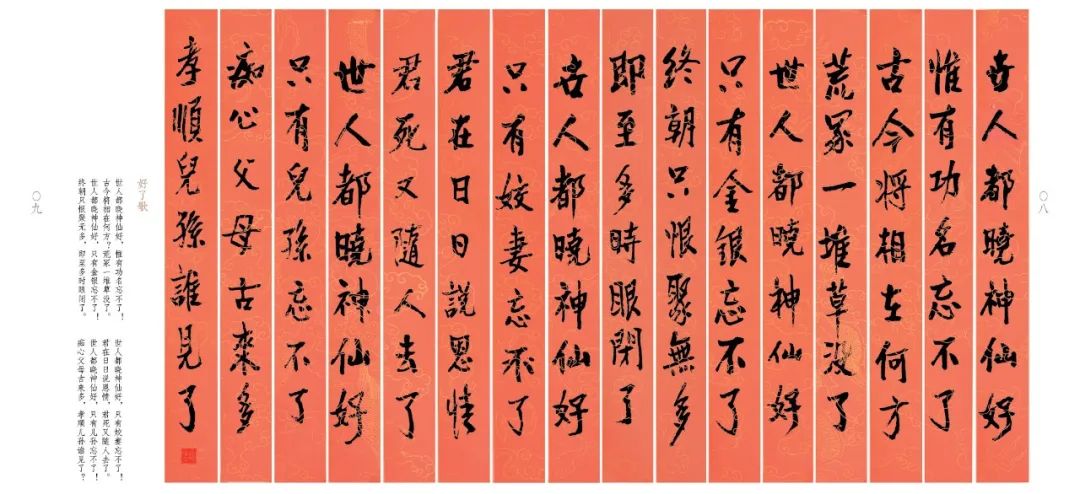 〇八
世人都曉神仙好
惟有功名忘不了
古今將相在何方
荒冢一堆草沒了
世人都曉神仙好
只有金銀忘不了
終朝只恨聚無多
即至多時眼閉了
世人都曉神仙好
只有姣妻忘不了
君在日日說恩情
君死又隨人去了
世人都曉神仙好
只有兒孫忘不了
痴心父母古來多
孝順兒孫誰見了
好了歌
世人都晓神仙好，惟有功名忘不了！
古今将相在何方？荒冢一堆草没了。
世人都晓神仙好，只有金银忘不了！
终朝只恨聚无多，即至多时眼闭了。
世人都晓神仙好，只有姣妻忘不了！
君在日日说恩情，君死又随人去了。
世人都晓神仙好，只有儿孙忘不了！
痴心父母古来多，孝顺儿孙谁见了？
〇九